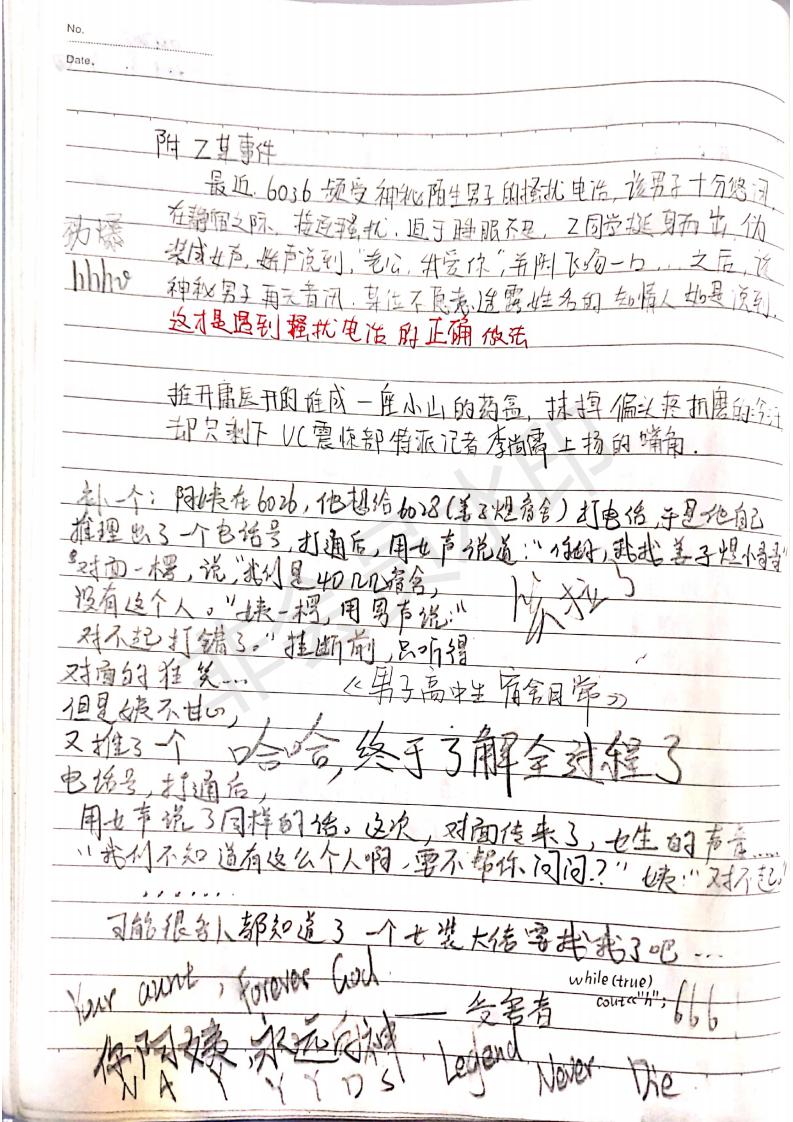 No.
Date.
附 Z某事件
最近,6036频受神秘陌生男子的骚扰电话,该男子十分悠闲,
在静间之际,接连骚扰,迫于睡眠不足,Z同学挺身而出,伪
劲爆
装成女声,娇声说到,"老公,我爱你",并附飞吻一口...之后,该
hhhh
神秘男子再无音讯.某位不愿意透露姓名的知情人如是说到,
这才是遇到骚扰电话的正确做法
推开庸医开的堆成一座小山的药盒,抹掉偏头疼折磨的冷汗
却只剩下UC震惊部特派记者李尚霈上扬的嘴角.
补一个:阿姨在6026,他想给6028(姜子煜宿舍)打电话,于是他自己
推理出了一个电话号,打通后,用女声说道:"你好,我找姜子煜小哥哥"
对面一楞,说,"我们是40宿舍,
没有这个人。"姨一楞,用男声说:"
对不起打错了。"挂断前,只听得
对面的狂笑....
《男子高中生宿舍日常》
但是姨不甘心,
又推了一个
哈哈,终于了解全过程了
电话号,打通后,
用女声说了同样的话。这次,对面传来了,女生的声音....
"我们不知道有这么个人啊,要不帮你问问?"姨:"对不起。"
.......
可能很多人都知道了一个女装大佬要找我了吧...
Your aunt, Forever God
——受害者
while(true)
cout<<"h";
666
你阿姨,永远的神
N A Y Y Y D S
Legend Never Die